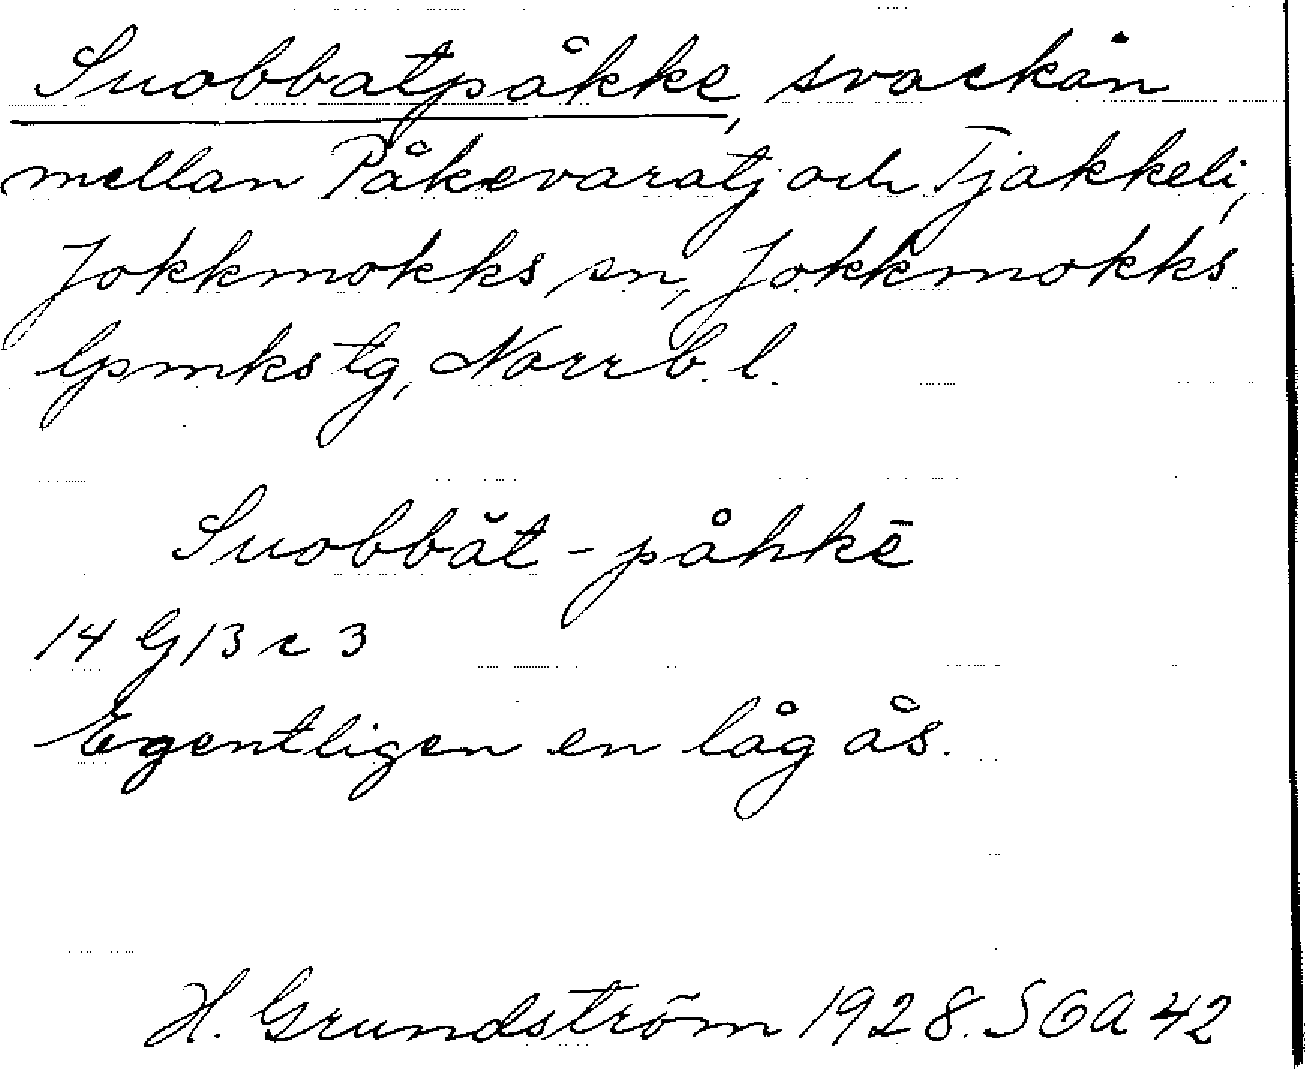 Suobbatpåkke, svackan
mellan Påkevaratj och Tjakkeli,
Jokkmokks sn, Jokkmokks
lpmks tg, Norrb. l.
Suobbăt-påhkē
14 G 13 c 3
Egentligen en låg ås.
H. Grundström 1928. SOA 42